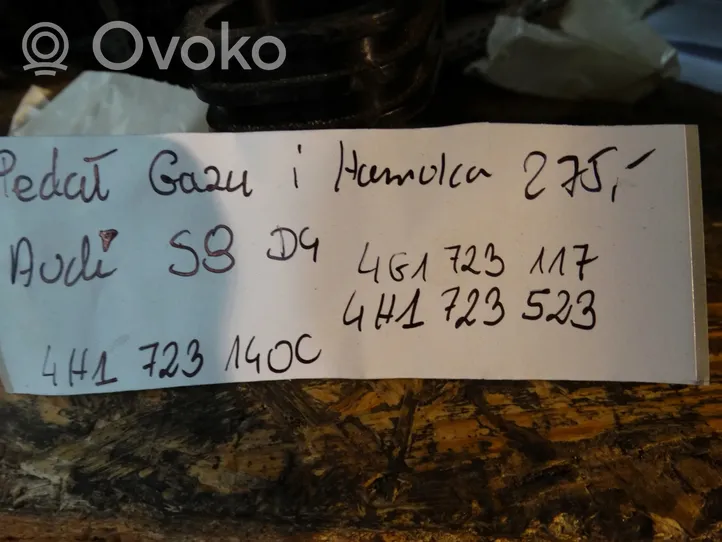 Ovoko
Pedał Gazu i Hamulca 275,-
Audi S8 D4
4G1 723 117
4H1 723 523
4H1 723 140C